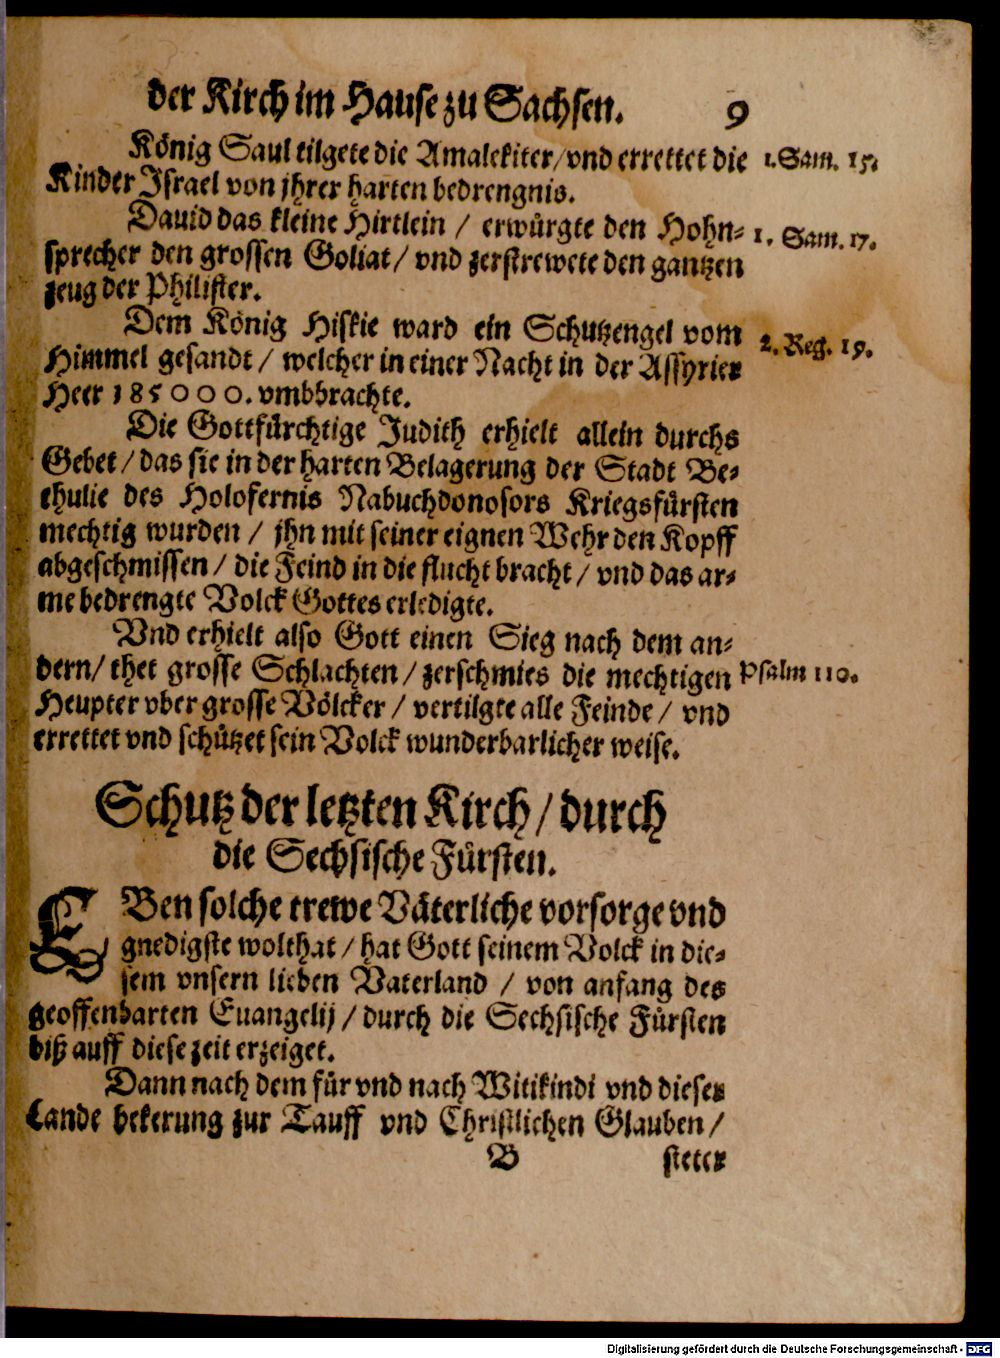 der Kirch im Hause zu Sachsen. 9
König Saul tilgete die Amalekiter/vnd errettet die 1. Sam. 15.
Kinder Israel von jhrer harten bedrengnis.
Dauid das kleine Hirtlein / erwürgte den Hohn- 1. Sam. 17.
sprecher den grossen Goliat/ vnd zerstrewete den gantzen
zeug der Philister.
Dem König Hiskie ward ein Schutzengel vom
Himmel gesandt / welcher in einer Nacht in der Assyrier 2. Reg. 19.
Heer 185000. vmbbrachte.
Die Gottfürchtige Judith erhielt allein durchs
Gebet/das sie in der harten Belagerung der Stadt Be-
thulie des Holofernis Nabuchdonosors Kriegsfürsten
mechtig wurden / jhn mit seiner eignen Wehr den Kopff
abgeschmissen / die Feind in die flucht bracht / vnd das ar-
me bedrengte Volck Gottes erledigte.
Vnd erhielt also Gott einen Sieg nach dem an-
dern/ thet grosse Schlachten / zerschmies die mechtigen Psalm 110.
Heupter vber grosse Völcker / vertilgte alle Feinde / vnd
errettet vnd schützet sein Volck wunderbarlicher weise.
Schutz der letzten Kirch / durch
die Sechsische Fürsten.
EBen solche trewe Väterliche vorsorge vnd
gnedigste wolthat / hat Gott seinem Volck in die-
sem vnsern lieben Vaterland / von anfang des
geoffenbarten Euangelij / durch die Sechsische Fürsten
biß auff diese zeit erzeiget.
Dann nach dem für vnd nach Witikindi vnd dieser
Lande bekerung zur Tauff vnd Christlichen Glauben /
B steter
Digitalisierung gefördert durch die Deutsche Forschungsgemeinschaft - DFG